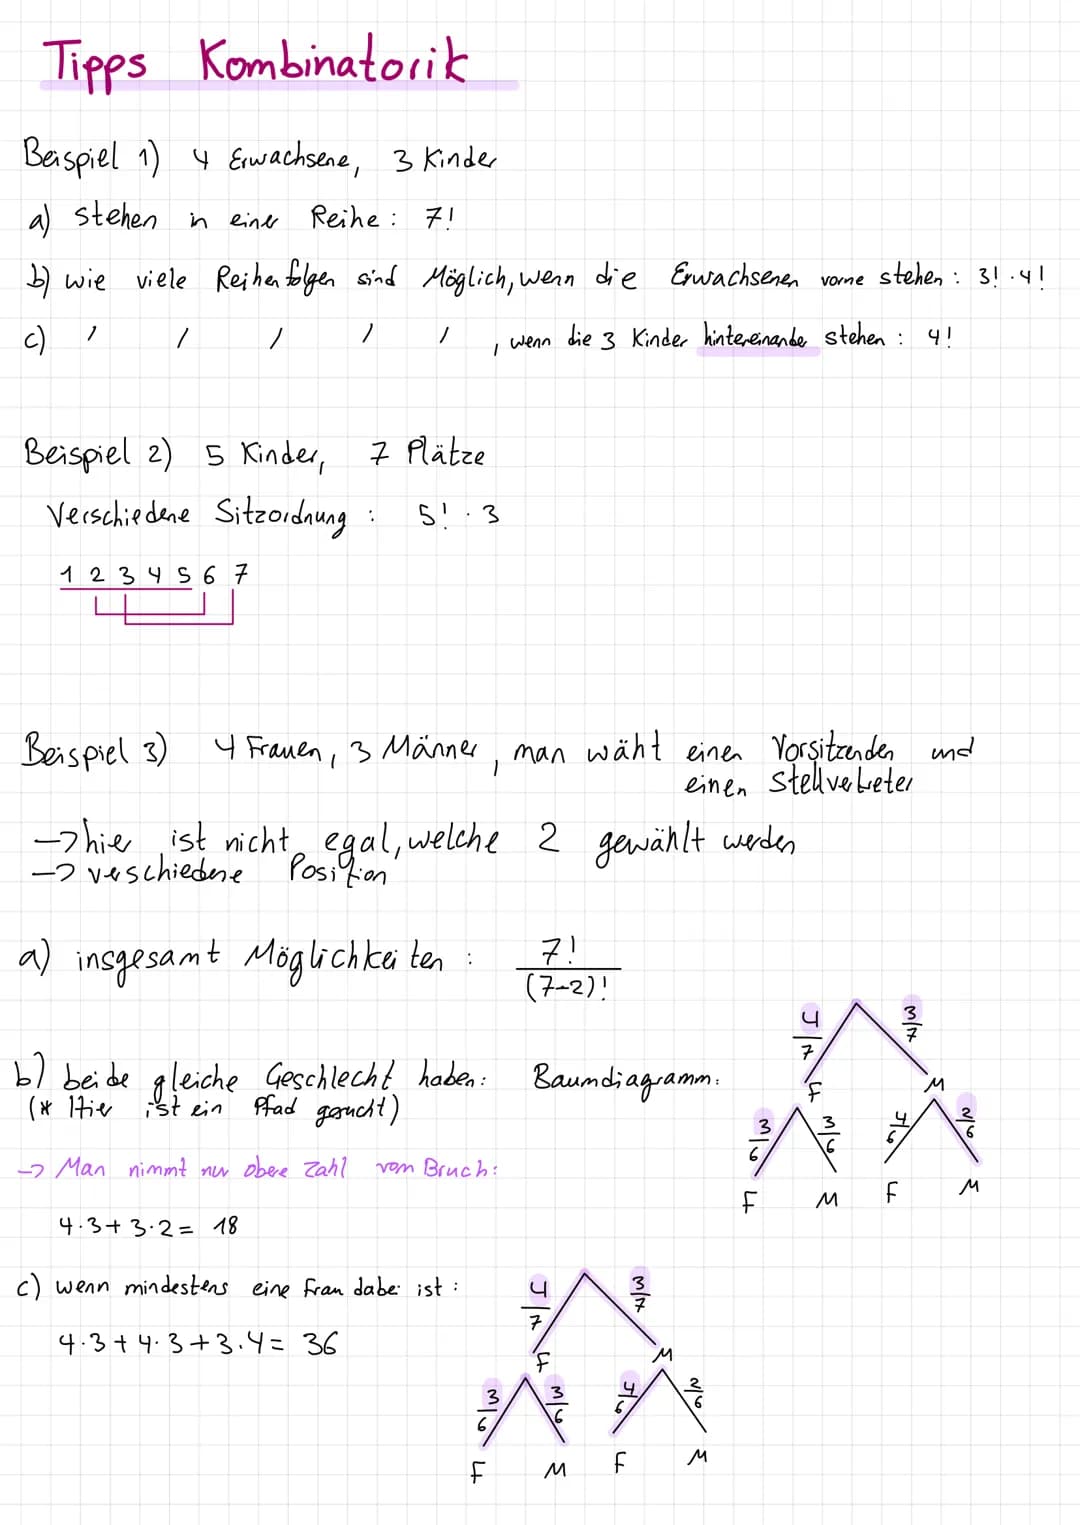 Tipps Kombinatorik
Beispiel 1) 4 Erwachsene, 3 Kinder
a) stehen in einer Reihe : 7!
b) wie viele Reihenfolgen sind Möglich, wenn die Erwachsenen vorne stehen : 3! · 4!
c) / / / / / , wenn die 3 Kinder hintereinande stehen : 4!
Beispiel 2) 5 Kinder, 7 Plätze
Verschiedene Sitzordnung : 5! · 3
1 2 3 4 5 6 7
Beispiel 3) 4 Frauen, 3 Männer, man wäht einen Vorsitzenden und
einen Stellvertreter
-> hier ist nicht egal, welche 2 gewählt werden
-> verschiedene Position
a) insgesamt Möglichkeiten : 7!
(7-2)!
4/7 3/7
b) beide gleiche Geschlecht haben : Baumdiagramm :
F M
(* Hier ist ein Pfad gesucht)
3/6 3/6 4/6 2/6
-> Man nimmt nur obere Zahl vom Bruch :
F M F M
4·3 + 3·2 = 18
c) wenn mindestens eine Frau dabei ist :
4/7 3/7
4·3 + 4·3 + 3·4 = 36
F M
3/6 3/6 4/6 2/6
F M F M